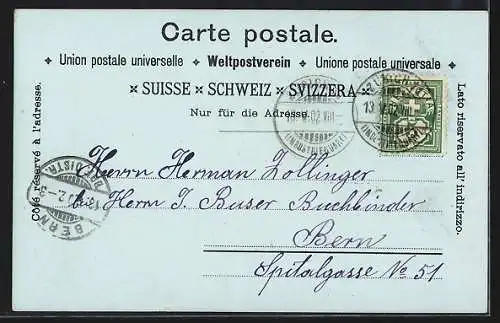 Carte postale.
✦ Union postale universelle ✦ Weltpostverein ✦ Unione postale universale ✦
× SUISSE × SCHWEIZ × SVIZZERA ×
Nur für die Adresse.
Côté réservé à l'adresse.
Lato riservato all'indirizzo.
Herrn Herman Zollinger
bei Herrn J. Buser Buchbinder
Bern
Spitalgasse No 51
13. V. 02. VIII
(INDUSTRIEQUART)
BERN